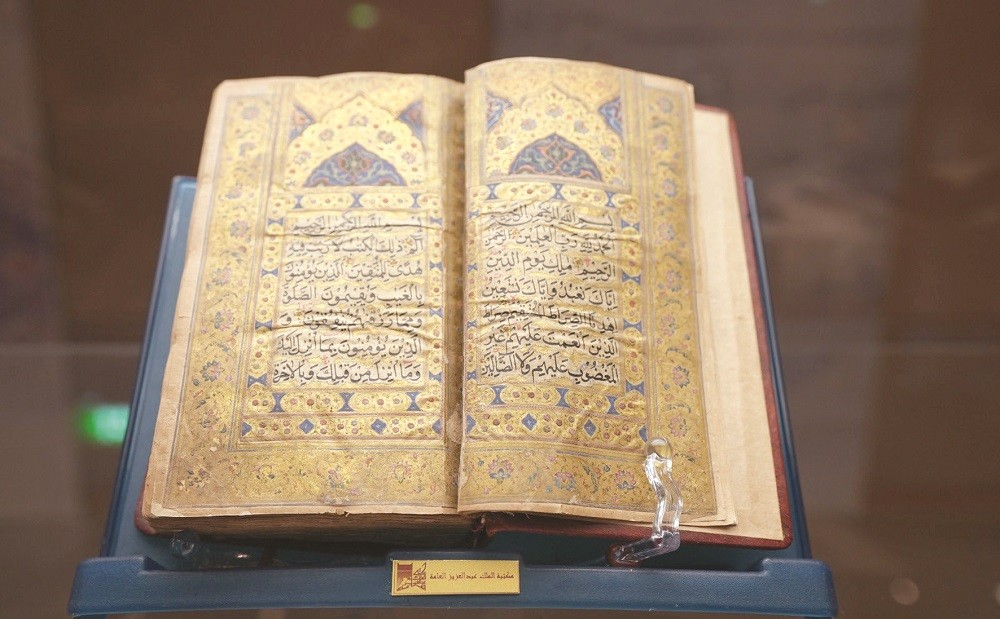 بِسْمِ اللهِ الرَّحْمٰنِ الرَّحِيْمِ
اَلْحَمْدُ لِلّٰهِ رَبِّ الْعٰلَمِيْنَ الرَّحْمٰنِ
الرَّحِيْمِ مٰلِكِ يَوْمِ الدِّيْنِ
اِيَّاكَ نَعْبُدُ وَاِيَّاكَ نَسْتَعِيْنُ
اِهْدِنَا الصِّرَاطَ الْمُسْتَقِيْمَ صِرَاطَ
الَّذِيْنَ اَنْعَمْتَ عَلَيْهِمْ غَيْرِ
الْمَغْضُوْبِ عَلَيْهِمْ وَلَا الضَّالِّيْنَ
بِسْمِ اللهِ الرَّحْمٰنِ الرَّحِيْمِ
الٓمّٓ ذٰلِكَ الْكِتٰبُ لَا رَيْبَ فِيْهِ
هُدًى لِلْمُتَّقِيْنَ الَّذِيْنَ يُؤْمِنُوْنَ
بِالْغَيْبِ وَيُقِيْمُوْنَ الصَّلٰوةَ
وَمِمَّا رَزَقْنٰهُمْ يُنْفِقُوْنَ وَ
الَّذِيْنَ يُؤْمِنُوْنَ بِمَا اُنْزِلَ اِلَيْكَ
وَمَا اُنْزِلَ مِنْ قَبْلِكَ وَبِالْاٰخِرَةِ
مكتبة الملك عبدالعزيز العامة